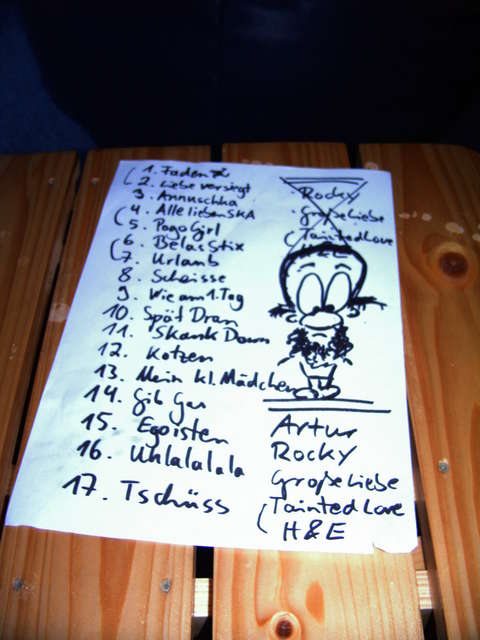 1. Faden
2. Liebe versingt
3. Annuschka
4. Alle lieben SKA
5. Pogo Girl
6. Bela & Stix
7. Urlaub
8. Scheisse
9. Wie am 1. Tag
10. Spät Dran
11. Skank Down
12. Kotzen
13. Mein kl. Mädchen
14. Gib Gas
15. Egoisten
16. Uhlalalala
17. Tschüss
Rocky
Große Liebe
Tainted Love
Artur
Rocky
Große Liebe
Tainted Love
H&E